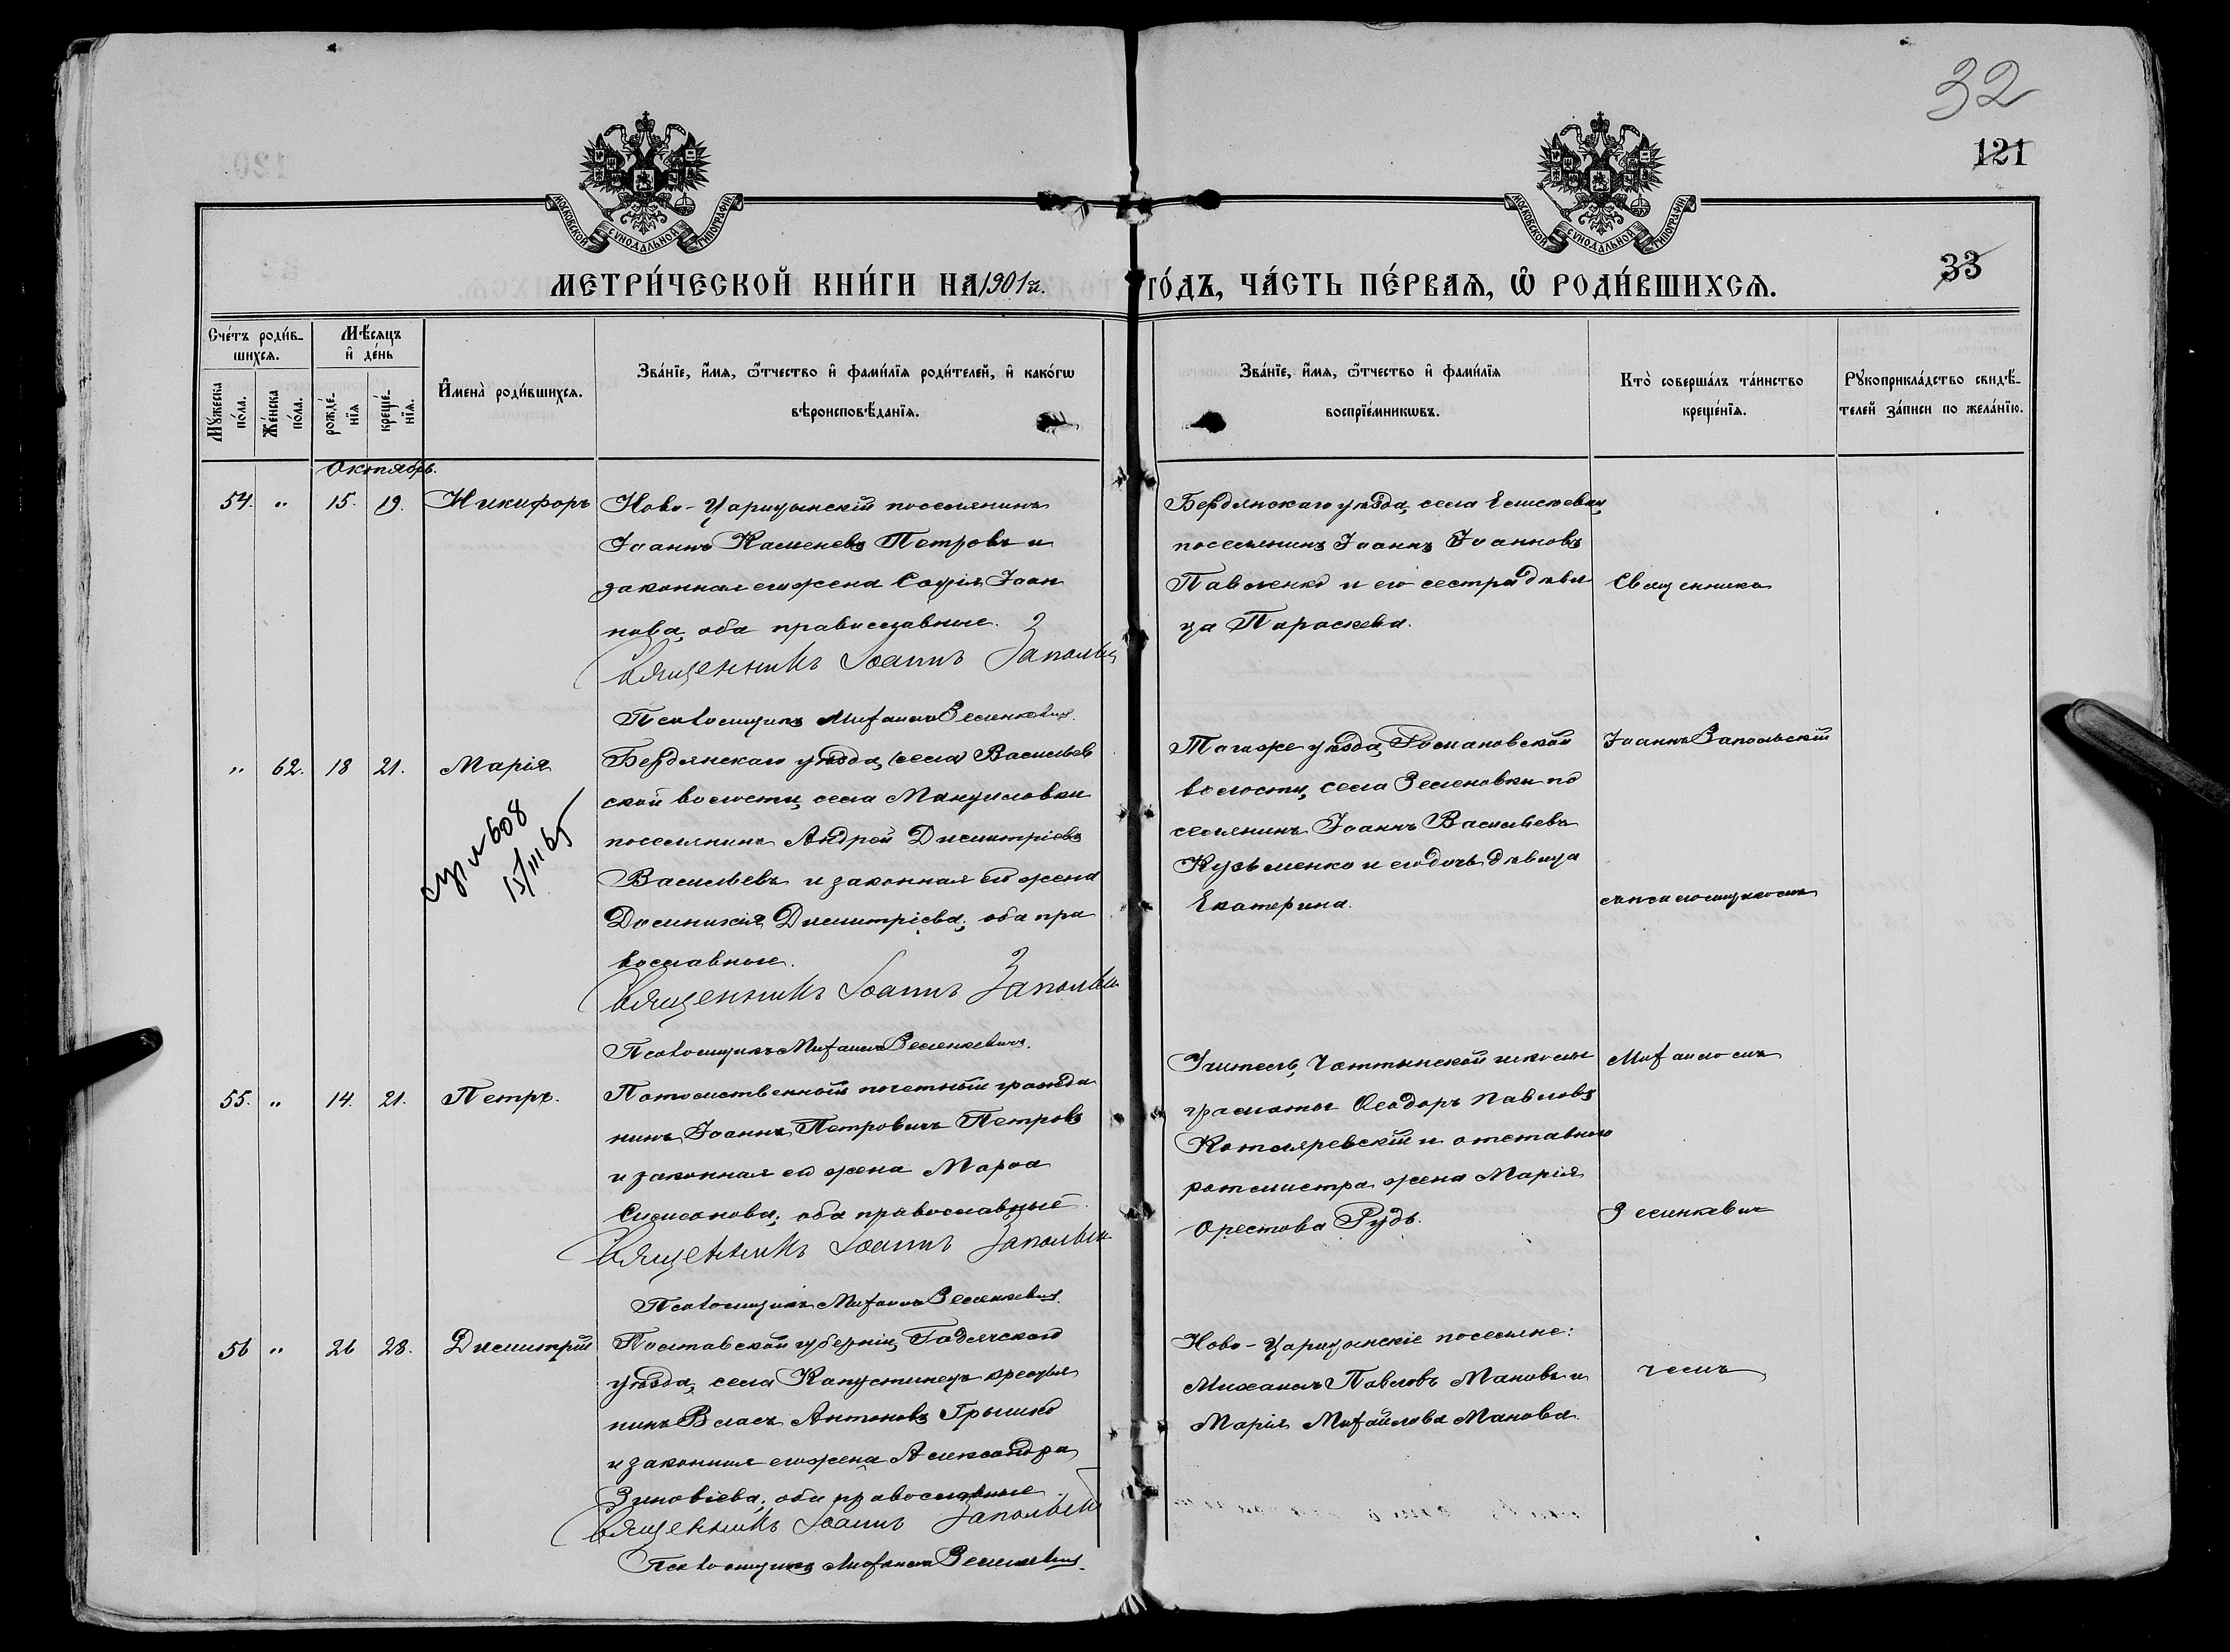 32
121
33
МОСКОВСКОЙ СѴНОДАЛЬНОЙ ТИПОГРАФІИ
МОСКОВСКОЙ СѴНОДАЛЬНОЙ ТИПОГРАФІИ
МЕТРИ́ЧЕСКОЙ КНИ́ГИ НА 1901 г. ГО́ДЪ, ЧА́СТЬ ПЕ́РВАЯ, Ѡ РОДИ́ВШИХСЯ.
Сче́тъ роди́вшихся.
Му́жеска по́ла.
Же́нска по́ла.
Мѣ́сяцъ и де́нь
рожде́нїя
креще́нїя.
Имена̀ роди́вшихся.
Зва́нїе, и́мя, ѻ́тчество и фами́лїя роди́телей, и како́гѡ
вѣроисповѣ́данїя.
Зва́нїе, и́мя, ѻ́тчество и фами́лїя
воспрїе́мникѡвъ.
Кто̀ соверша́лъ та́инство
креще́нїя.
Рꙋкоприкла́дство свидѣ́-
телей за́писи по жела́нїю.
Октябрь.
54. " 15. 19. Никифоръ
Ново-Царицынскій поселянинъ
Іоаннъ Каменевъ Петровъ и
законная его жена Софія Іоан
нова, оба православные.
Священникъ Іоаннъ Заполь
Псаломщикъ Михаилъ Зеленкевичъ.
Бердянскаго уѣзда, села
поселянинъ Іоаннъ Іоанновъ
Павленко и его сестра дѣви
ца Параскева.
" 62. 18 21. Марія
608
15/III 65
Бердянскаго уѣзда, (села) Васильев
ской волости, села Мануиловки
поселянинъ Андрей Димитріевъ
Васильевъ и законная его жена
Домникія Димитріева, оба пра
вославные.
Священникъ Іоаннъ Заполь
Псаломщикъ Михаилъ Зеленкевичъ.
Тогоже уѣзда, Романовской
волости, села Зеленовки по
селянинъ Іоаннъ Васильевъ
Кузьменко и его дочь дѣвица
Екатерина.
55. " 14. 21. Петръ.
Потомственный почетный гражда
нинъ Іоаннъ Петровичъ Петровъ
и законная его жена Марѳа
оба православные.
Священникъ Іоаннъ Запольск
Псаломщикъ Михаилъ Зеленкевичъ.
Учитель, школы
грамоты Ѳеодоръ Павловъ
Котляревскій и отставного
ротмистра жена Марія
Орестова Рудь.
56 " 26 28. Димитрій
Полтавской губерніи, Гадячского
уѣзда, села Капустинецъ крестья
нинъ Власъ Антоновъ Грышко
и законная его жена Александра
Зиновіева, оба православные.
Священникъ Іоаннъ Запольскій
Псаломщикъ Михаилъ Зеленкевичъ.
Ново-Царицынскіе поселяне:
Михаилъ Павловъ Мановъ и
Марія Михайлова Манова.
Священникъ
Іоаннъ Запольскій
съ псаломщикомъ
Михаиломъ
Зеленкеви
чемъ